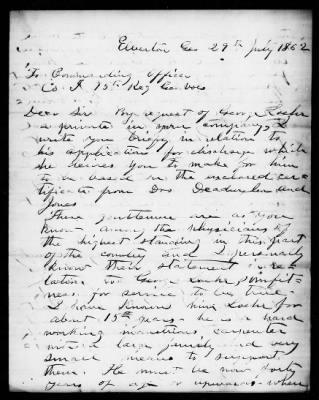 Elberton Geo 29th July 1862
To Commanding Officer
Co. I 15th Reg Ga Vols
Dear Sir By request of George Loehr
a private in your company I
write you briefly in relation to
his application for discharge which
he desires you to make for him
to be based on the enclosed cer
tificate from Drs Deadwyler and
Jones
These gentlemen are as you
know among the physicians of
the highest standing in this part
of the country and I personally
know their statement in re
lation to George Loehr's unfit-
ness for service to be true
I have known him Loehr for
about 15 years. he is a hard
working industrious carpenter
with a large family and very
small means to support
them. He must be now forty
years of age or upwards when